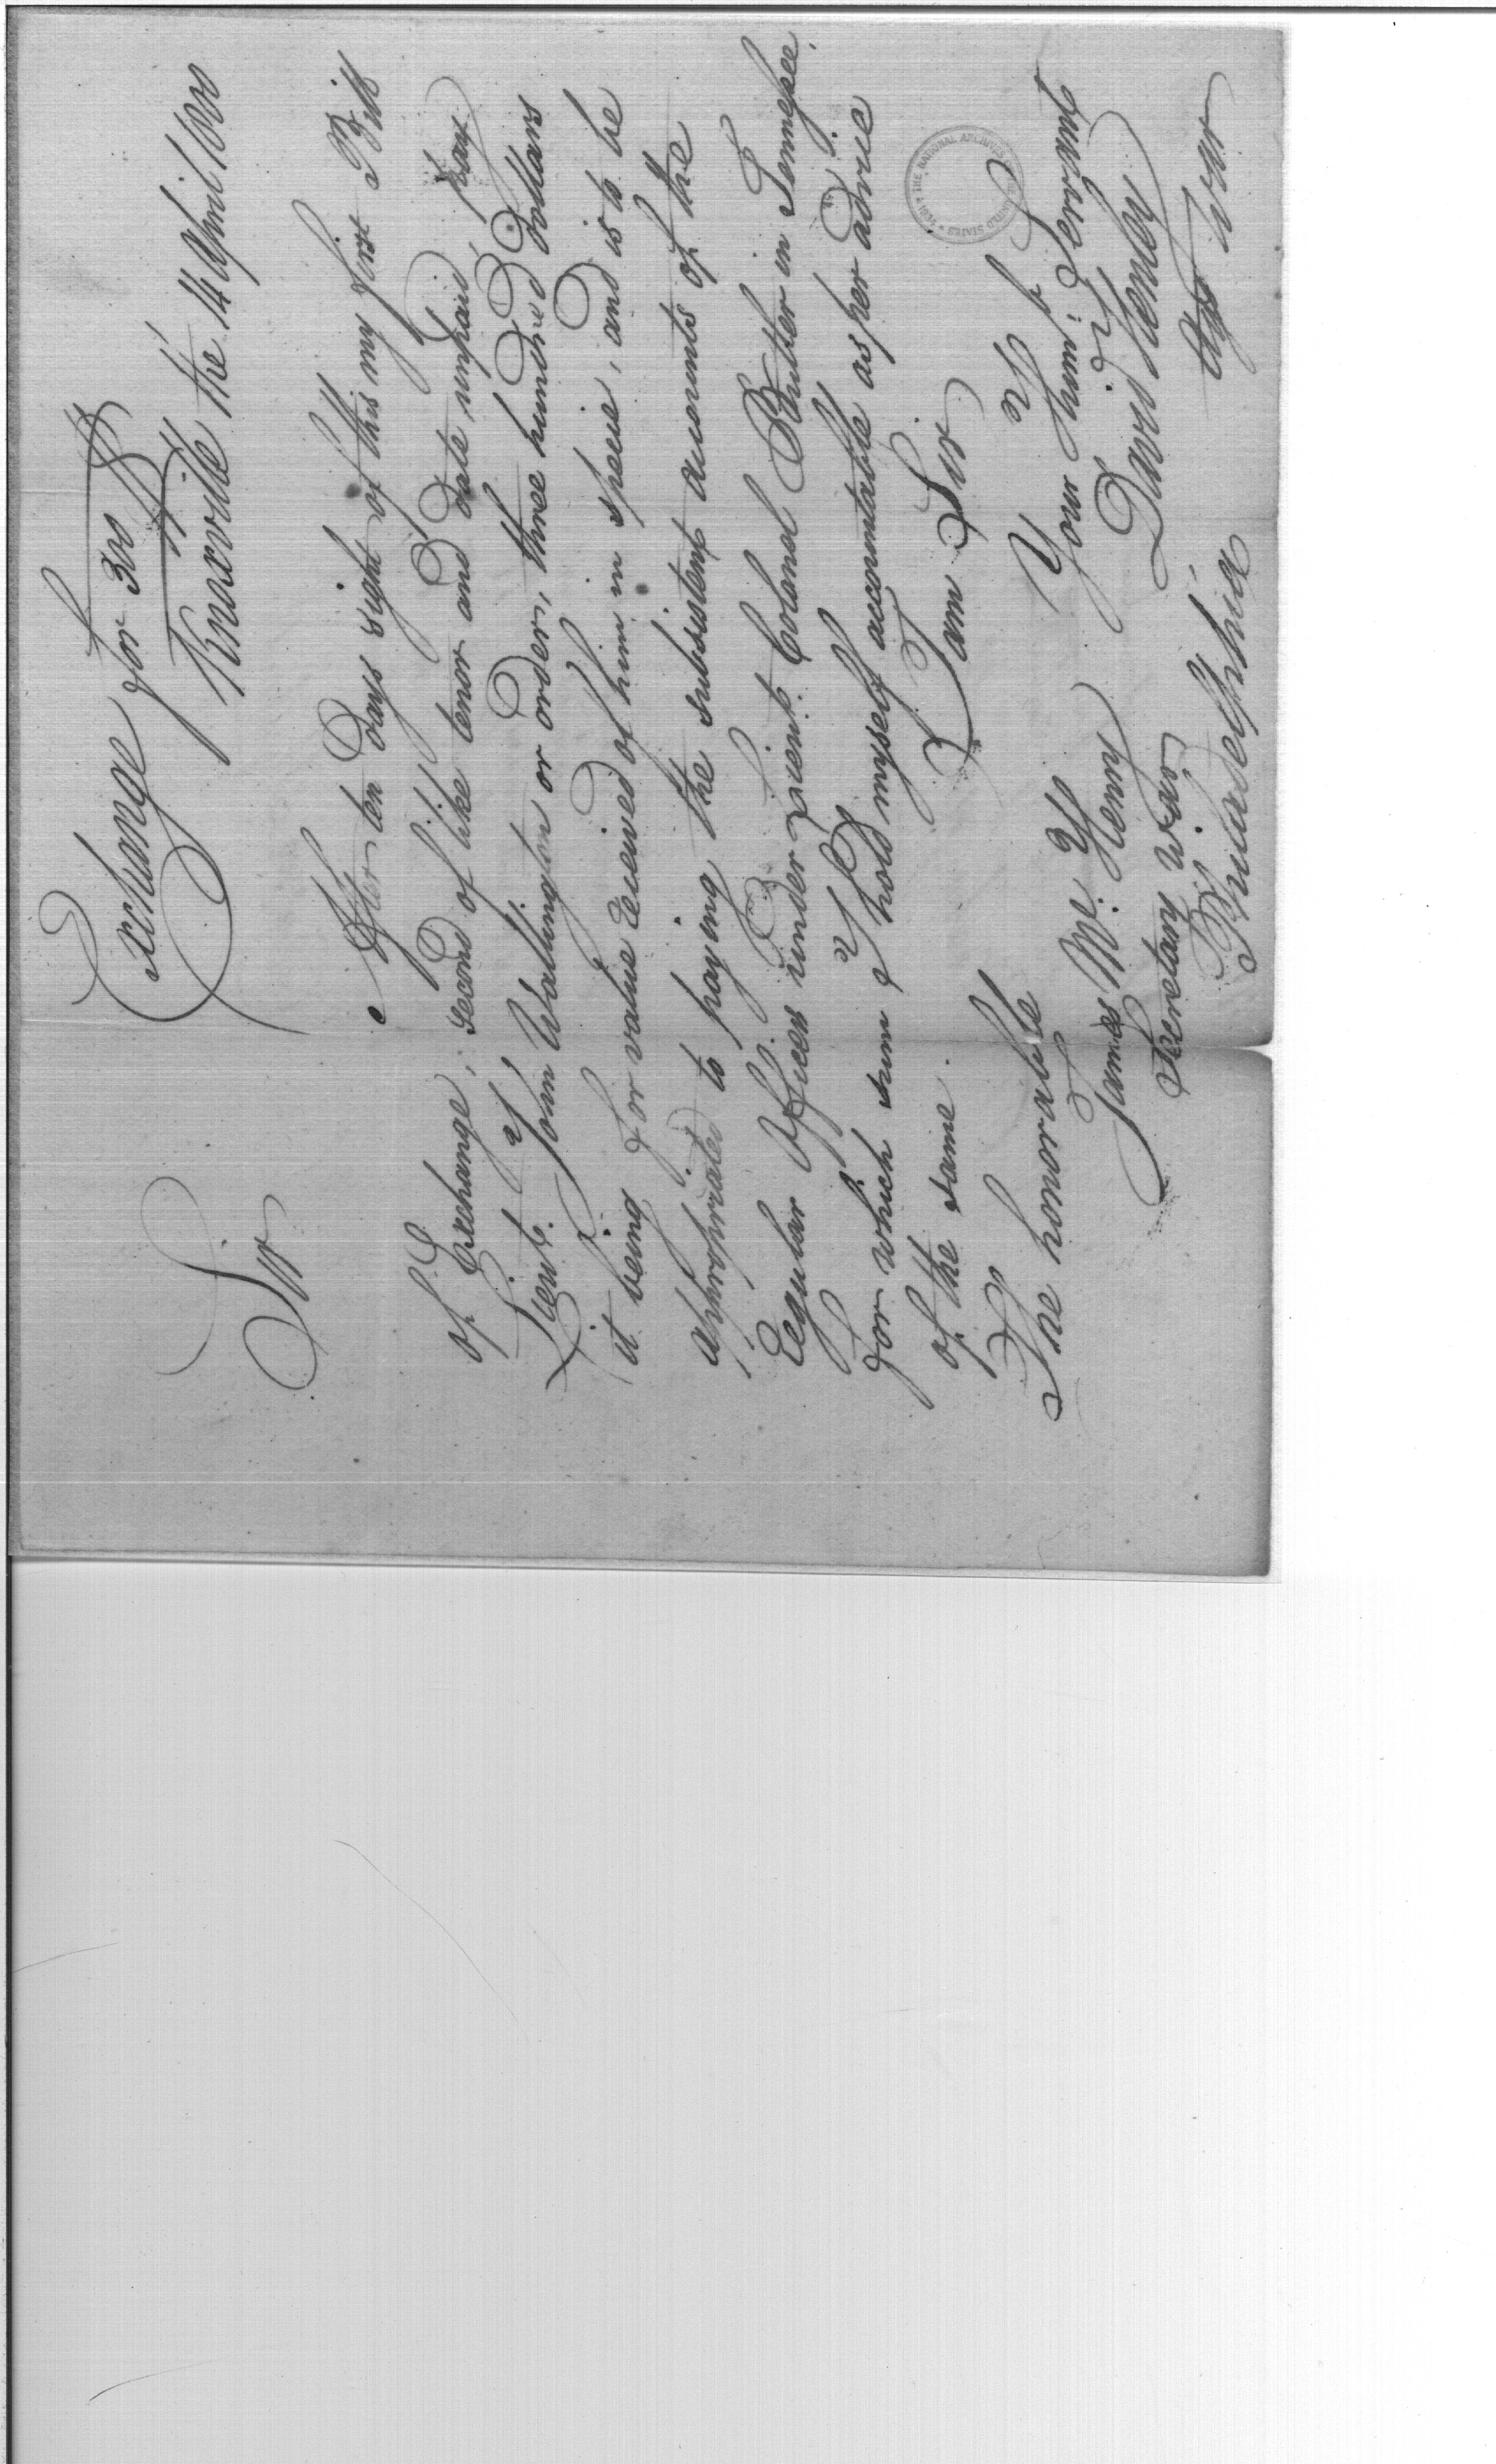 Exchange for 300 D
Knoxville the 14 April 1800
Sir
After ten Days sight of this my first Bill
of Exchange; second of like tenor and Date unpaid, pay
Lieut. John Wallington or order, three hundred Dollars
it being for value Received of him in specie, and is to be
appropriated to paying the subsistence accounts of the
Regular Officers under Lieut. Colonel Butler in Tennessee,
for which sum I hold myself accountable as per advice
of the same.
I am Sir
Your hum. Servant
The honorable
James Mc. Henry
David Henley
Secretary War
Agt War
Philadelphia
THE NATIONAL ARCHIVES OF THE UNITED STATES • 1934 •